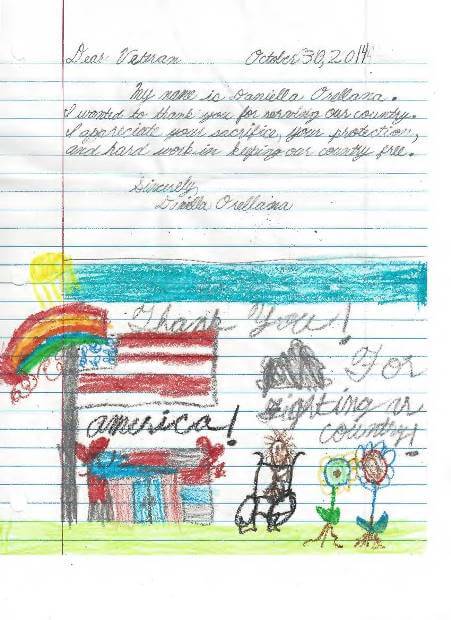 Dear Veteran October 30, 2014
My name is Daniella Orellana.
I wanted to thank you for serving our country.
I appreciate your sacrifice, your protection,
and hard work in keeping our country free.
Sincerely,
Daniella Orellana
Thank You!
For
fighting ar
country!
america!